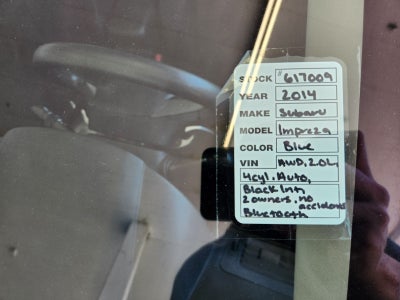 STOCK #617009
YEAR 2014
MAKE Subaru
MODEL Impreza
COLOR Blue
VIN AWD, 2.0L,
4cyl, Auto,
Black Int,
2 owners, no accidents
Bluetooth